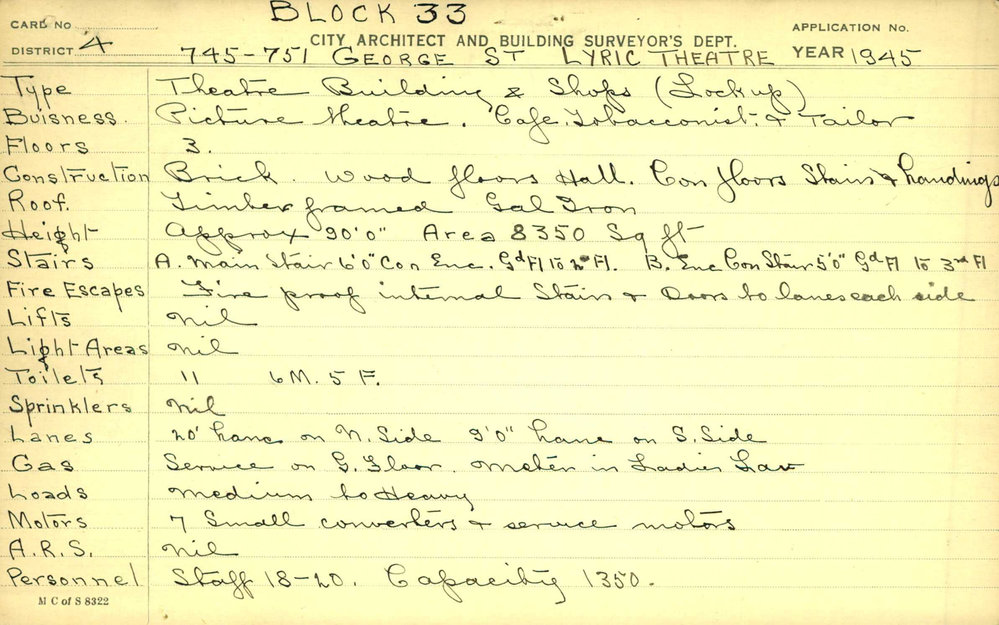 BLOCK 33
CARD No
APPLICATION No.
CITY ARCHITECT AND BUILDING SURVEYOR'S DEPT.
DISTRICT 4
745-751 GEORGE ST LYRIC THEATRE
YEAR 1945
Type Theatre Building & Shops (Lock up)
Buisness. Picture theatre. Cafe, Tobacconist. & Tailor
Floors 3.
Construction Brick. Wood floors Hall. Con floors Stairs & Landings
Roof. Timber framed Gal Iron
Height Approx 90'0" Area 8350 Sq ft
Stairs A. Main Stair 6'0" Con Enc. Gd Fl to 2nd Fl. B. Enc Con Stair 5'0" Gd Fl to 3rd Fl
Fire Escapes Fire proof internal Stairs & Doors to lanes each side
Lifts Nil
Light Areas Nil
Toilets 11 6 M. 5 F.
Sprinklers Nil
Lanes 20' Lane on N. Side 9'0" Lane on S. Side
Gas Service on G. Floor. Meter in Ladies Lav
Loads Medium to Heavy
Motors 7 Small converters & service motors
A.R.S. Nil
Personnel Staff 18-20. Capacity 1350.
M C of S 8322